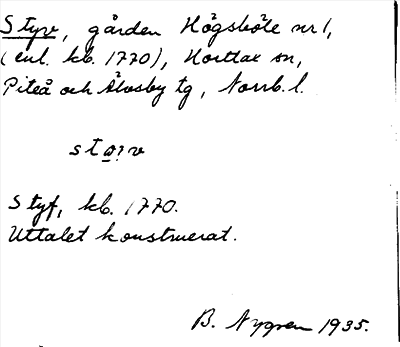 Styv, gården Högsböle nr 1,
(enl. kb. 1770), Hortlax sn,
Piteå och Älvsby tg, Norrb. l.
Styf, kb. 1770.
Uttalet konstruerat.
B. Nygren 1935.